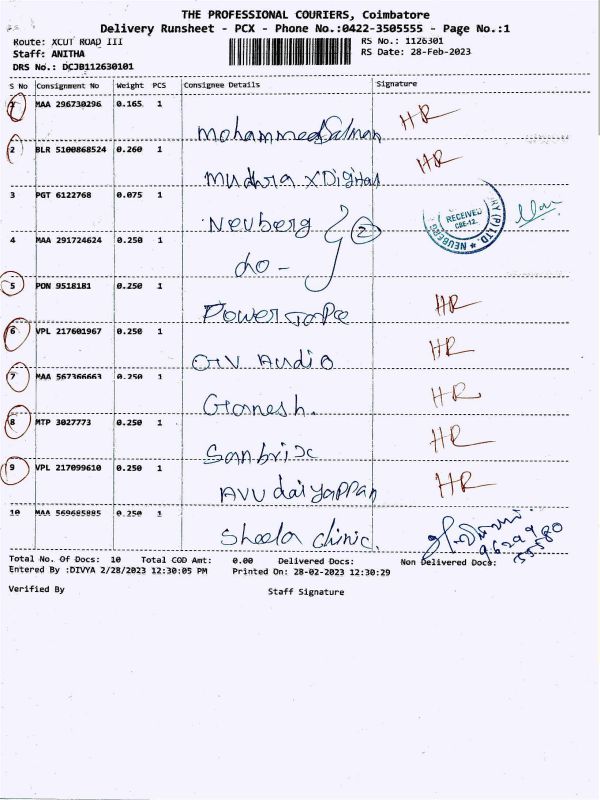 THE PROFESSIONAL COURIERS, Coimbatore
Delivery Runsheet - PCX - Phone No.:0422-3505555 - Page No.:1
Route: XCUT ROAD III
RS No.: 1126301
Staff: ANITHA
RS Date: 28-Feb-2023
DRS No.: DCJB112630101
S No Consignment No Weight PCS Consignee Details Signature
1 MAA 296730296 0.165 1
Mohammed Salman HR
2 BLR 5100868524 0.260 1
Mudhra XDigital HR
3 PGT 6122768 0.075 1
Neuberg 2
RECEIVED
CBE-12.
4 MAA 291724624 0.250 1
do -
5 PON 9518181 0.250 1
HR
6 VPL 217601967 0.250 1
Audio HR
7 MAA 567366663 0.250 1
Ganesh. HR
8 MTP 3027773 0.250 1
Sanbrix HR
9 VPL 217099610 0.250 1
Avudaiyappan HR
10 MAA 569685885 0.250 1
Sheela clinic.
Total No. Of Docs: 10 Total COD Amt: 0.00 Delivered Docs: Non Delivered Docs:
Entered By :DIVYA 2/28/2023 12:30:05 PM Printed On: 28-02-2023 12:30:29
Verified By Staff Signature